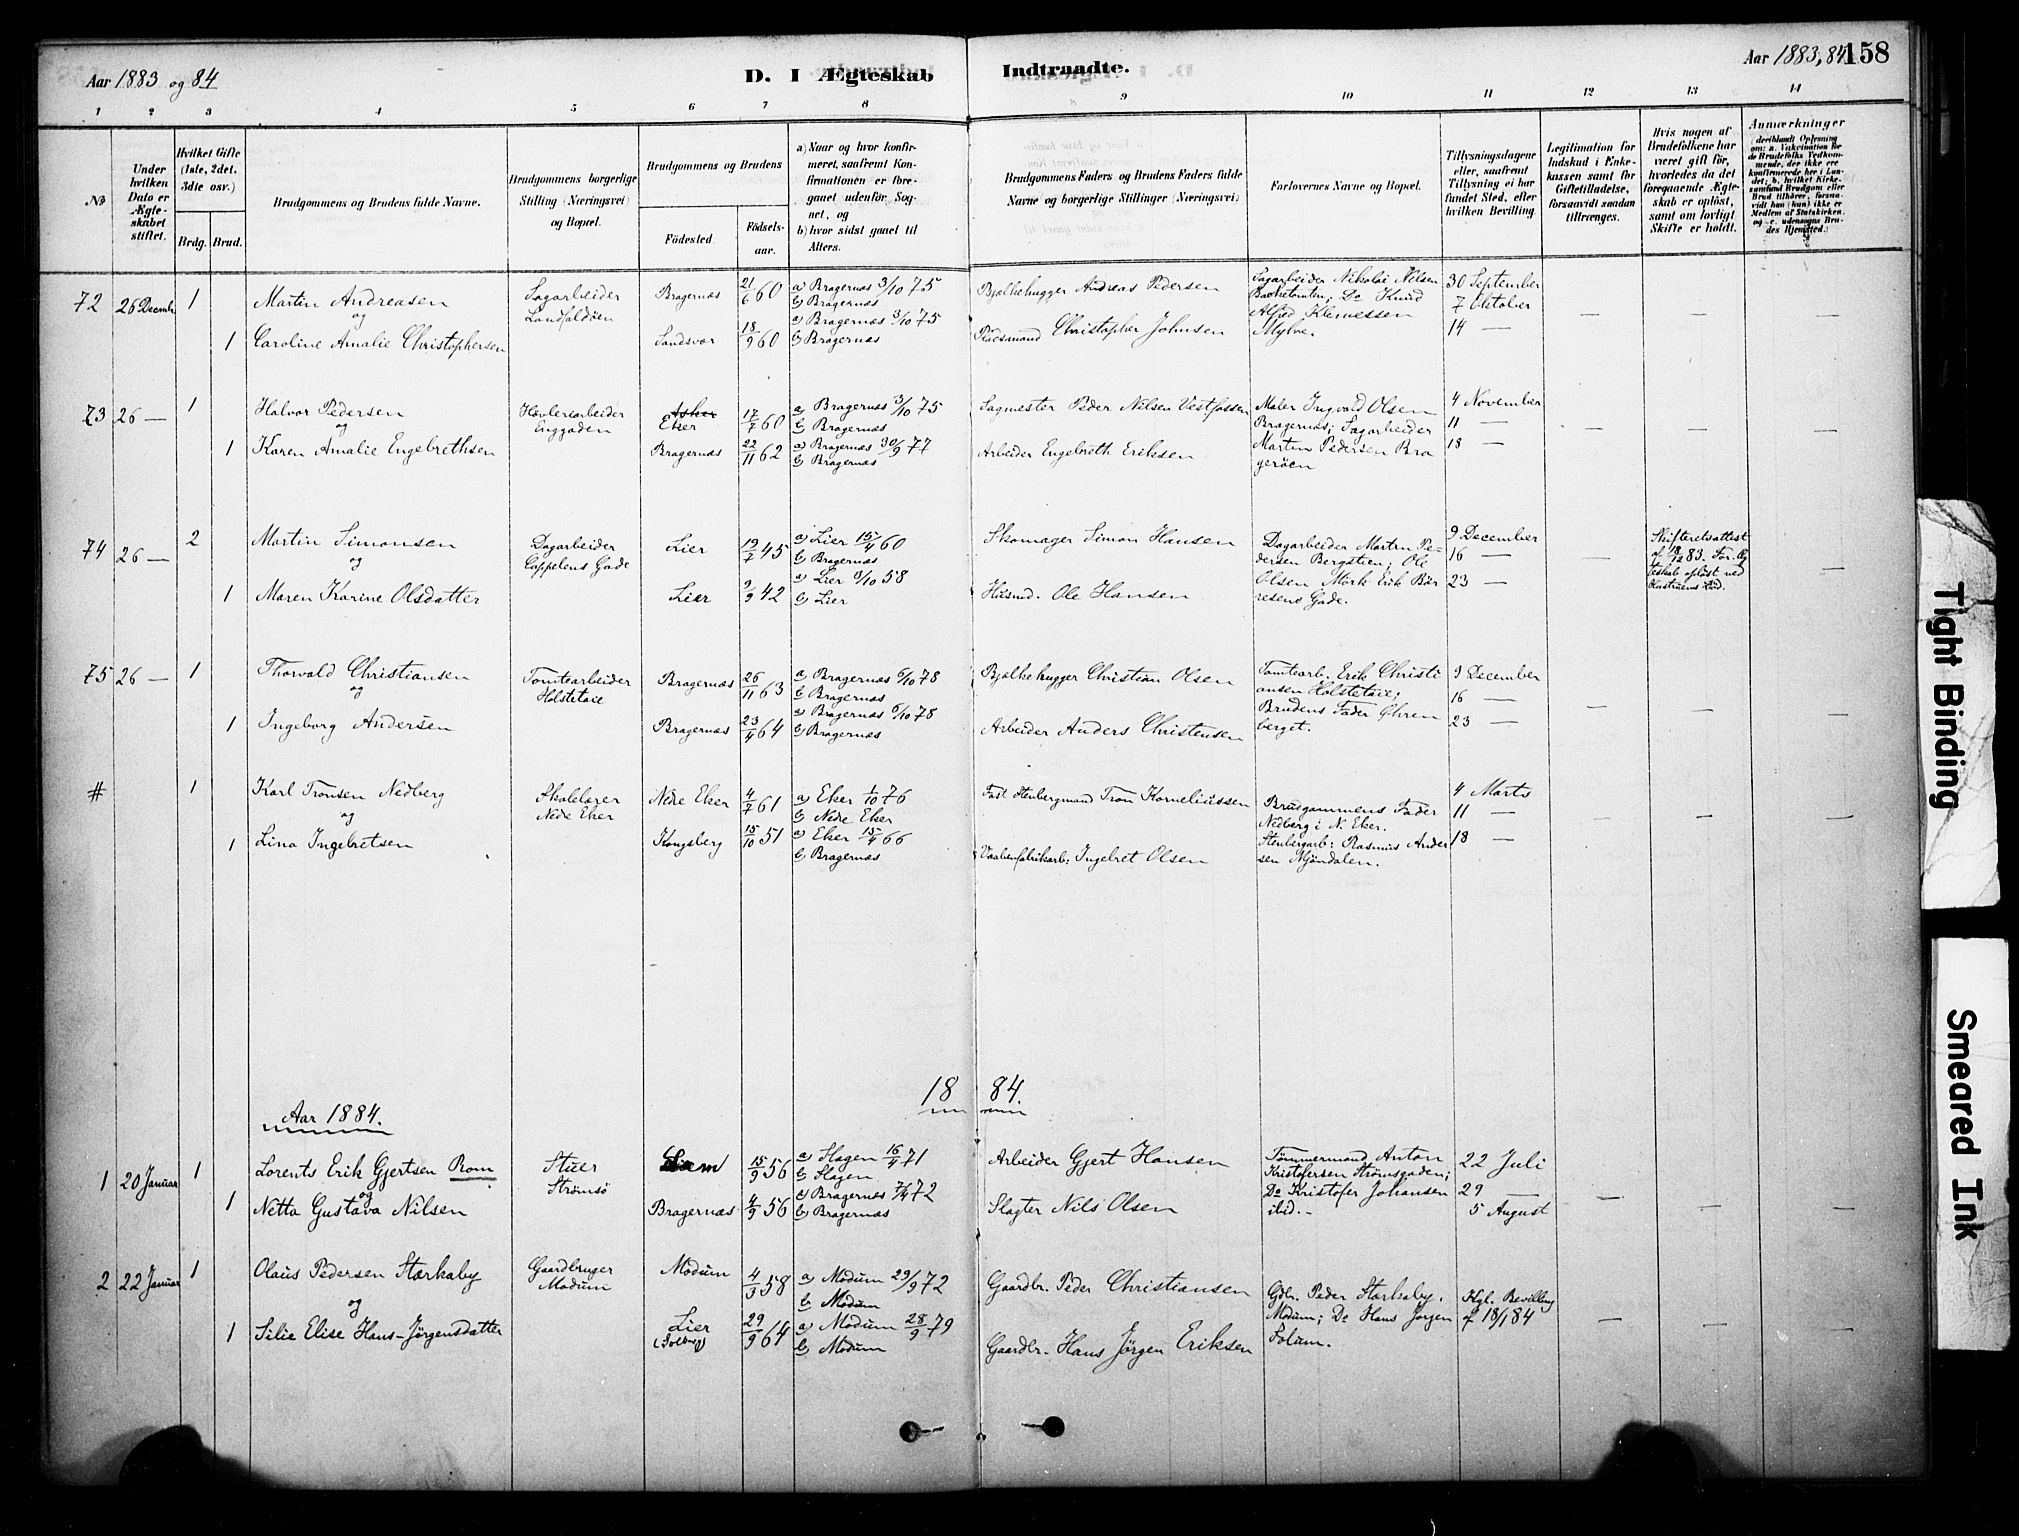 Aar 1883 og 84
D. I Ægteskab Indtraadte.
Aar 1883, 84 158
1 2 3 4 5 6 7 8 9 10 11 12 13 14
№
Under hvilken Dato er Ægteskabet stiftet.
Hvilket Gifte (1ste, 2det, 3dte osv.)
Brdg. Brud.
Brudgommens og Brudens fulde Navne.
Brudgommens borgerlige Stilling (Næringsvei) og Bopæl.
Brudgommens og Brudens
Födested. Födsels-aar.
a) Naar og hvor konfirmeret, saafremt Konfirmationen er foregaaet udenfor Sognet, og
b) hvor sidst gaaet til Alters.
Brudgommens Faders og Brudens Faders fulde Navne og borgerlige Stillinger (Næringsvei)
Forlovernes Navne og Bopæl.
Tillysningsdagene eller, saafremt Tillysning ei har fundet Sted, efter hvilken Bevilling.
Legitimation for Indskud i Enkekassen samt for Giftetilladelse, forsaavidt saadan tiltrænges.
Hvis nogen af Brudefolkene har været gift för, hvorledes da det foregaaende Ægteskab er oplöst, samt om lovligt Skifte er holdt.
Anmærkninger
72 26 Decembr 1 Martin Andreasen Sagarbeider Bragernæs 21/6 60 a) Bragernæs 3/10 75 Bjælkehugger Andreas Pedersen Sagarbeider Nikolai Nilsen 30 September
og Landfaldöen b) Bragernæs Do Knud 7 Oktober
1 Caroline Amalie Christophersen Sandsvær 18/9 60 a) Bragernæs 3/10 75 Christopher Johnsen Alfred 14 —
b) Bragernæs
73 26 — 1 Halvor Pedersen Hövleriarbeider Asker Eker 17/7 60 a) Bragernæs 3/10 75 Sagmester Peder Nilsen Vestfossen Maler Ingvald Olsen 4 November
og Enggaden b) Bragernæs Bragernæs; Sagarbeider 11 —
1 Karen Amalie Engebrethsen Bragernæs 22/11 62 a) Bragernæs 30/9 77 Arbeider Engebreth Eriksen Martin Pedersen Bra 18 —
b) Bragernæs geröen
74 26 — 2 Martin Simonsen Dagarbeider Lier 19/7 45 a) Lier 15/4 60 Skomager Simon Hansen Dagarbeider Martin Pe- 9 December Skifteretsattest
og Cappelens Gade b) Bragernæs dersen Bergstien; Ole 16 — af 18/12 83. For. Æg
1 Maren Karine Olsdatter Lier 2/9 42 a) Lier 3/10 58 Husmd. Ole Hansen Olsen Mörk Erik Bör 23 — teskab oplöst ved
b) Lier resens Gade. Hustruens Död.
75 26 — 1 Thorvald Christiansen Tomtearbeider Bragernæs 26/11 63 a) Bragernæs 6/10 78 Bjælkehugger Christian Olsen Tomtearb. Erik Christi 9 December
og Holstetaie b) Bragernæs ansen Holstetaie; 16 —
1 Ingeborg Andersen Bragernæs 23/4 64 a) Bragernæs 6/10 78 Arbeider Anders Christensen Brudens Fader Öhren 23 —
b) Bragernæs berget.
# 1 Karl Tronsen Nedberg Skolelærer Nedre Eker 4/7 61 a) Eker 1/10 76 Tron Korneliussen Brudgommens Fader 4 Marts
og Nedre Eker b) Nedre Eker Nedberg i N. Eker. 11 —
1 Lina Ingebretsen Kongsberg 15/10 51 a) Eker 15/4 66 Vaabenfabrikarb. Ingebret Olsen Rasmus Ander 18 —
b) Bragernæs sen Mjöndalen.
1884.
Aar 1884.
1 20 Januar 1 Lorents Erik Gjertsen Rom Stuer 15/9 56 a) Slagen 16/4 71 Arbeider Gjert Hansen Tömmermand Anton 22 Juli
og Strömsö b) Slagen Kristofersen Strömsgaden;
1 Netta Gustava Nilsen Bragernæs 4/9 56 a) Bragernæs 7/4 72 Slagter Nils Olsen Do Kristofer Johansen 29 —
b) Bragernæs ibid. 5 August
2 22 Januar 1 Olaus Pedersen Stærkeby Gaardbruger Modum 4/3 58 a) Modum 29/9 72 Gaardbr. Peder Christiansen Gdbr. Peder Stærkeby, Kgl. Bevilling
og Modum b) Modum Modum; Do Hans Jörgen af 18/1 84
1 Silie Elise Hans-Jörgensdatter Lier (Solberg) 29/9 64 a) Modum 28/9 79 Gaardbr. Hans Jörgen Eriksen Folum.
b) Modum
Tight Binding
Smeared Ink